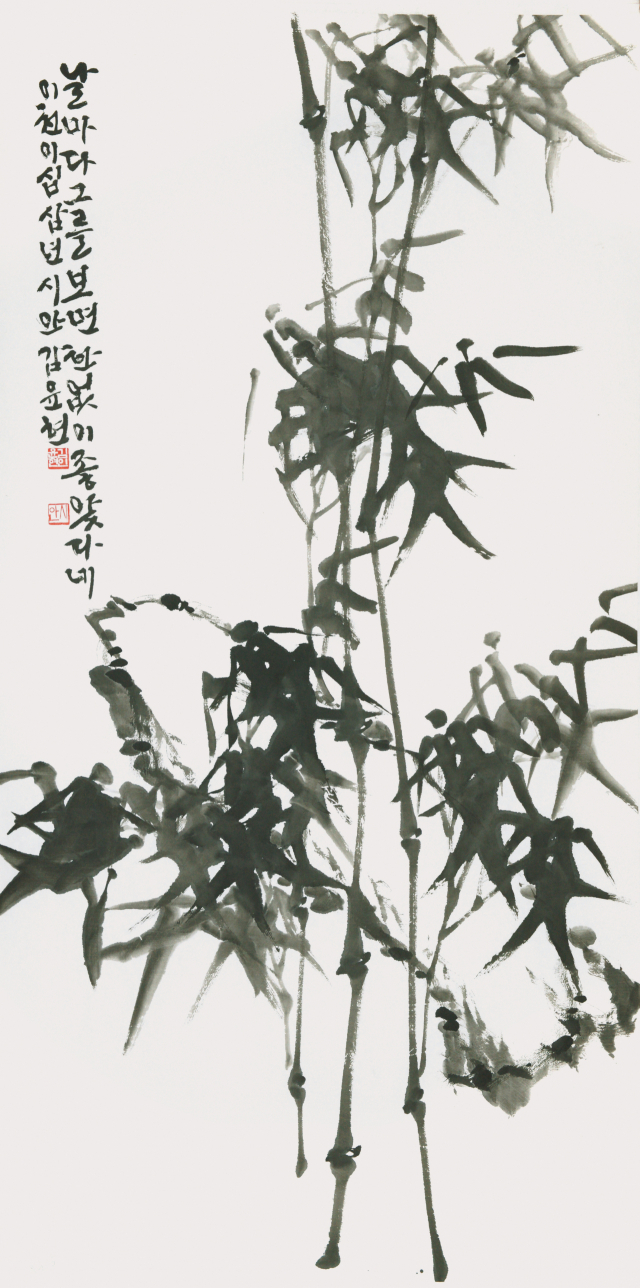 날마다그를보면한없이좋았다네
이천이십삼년시안김윤현
시안